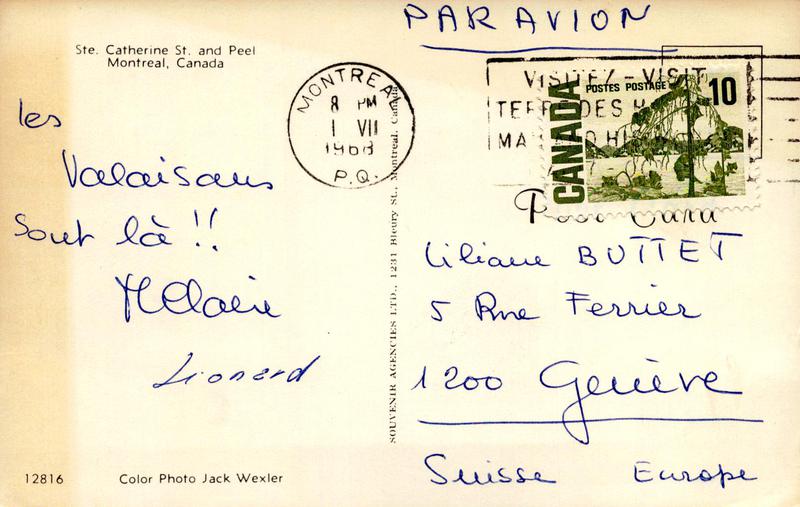 PAR AVION
Ste. Catherine St. and Peel
Montreal, Canada
MONTREAL
8 PM
1 VII
1968
P.Q.
VISITEZ - VISIT
TERRE DES H
MA
POSTES POSTAGE
10
CANADA
Post Card
les
Valaisans
sont là !!
Lionard
SOUVENIR AGENCIES LTD., 1231 Bleury St., Montreal, Canada
Liliane BUTTET
5 Rue Ferrier
1200 Genève
Suisse Europe
12816
Color Photo Jack Wexler